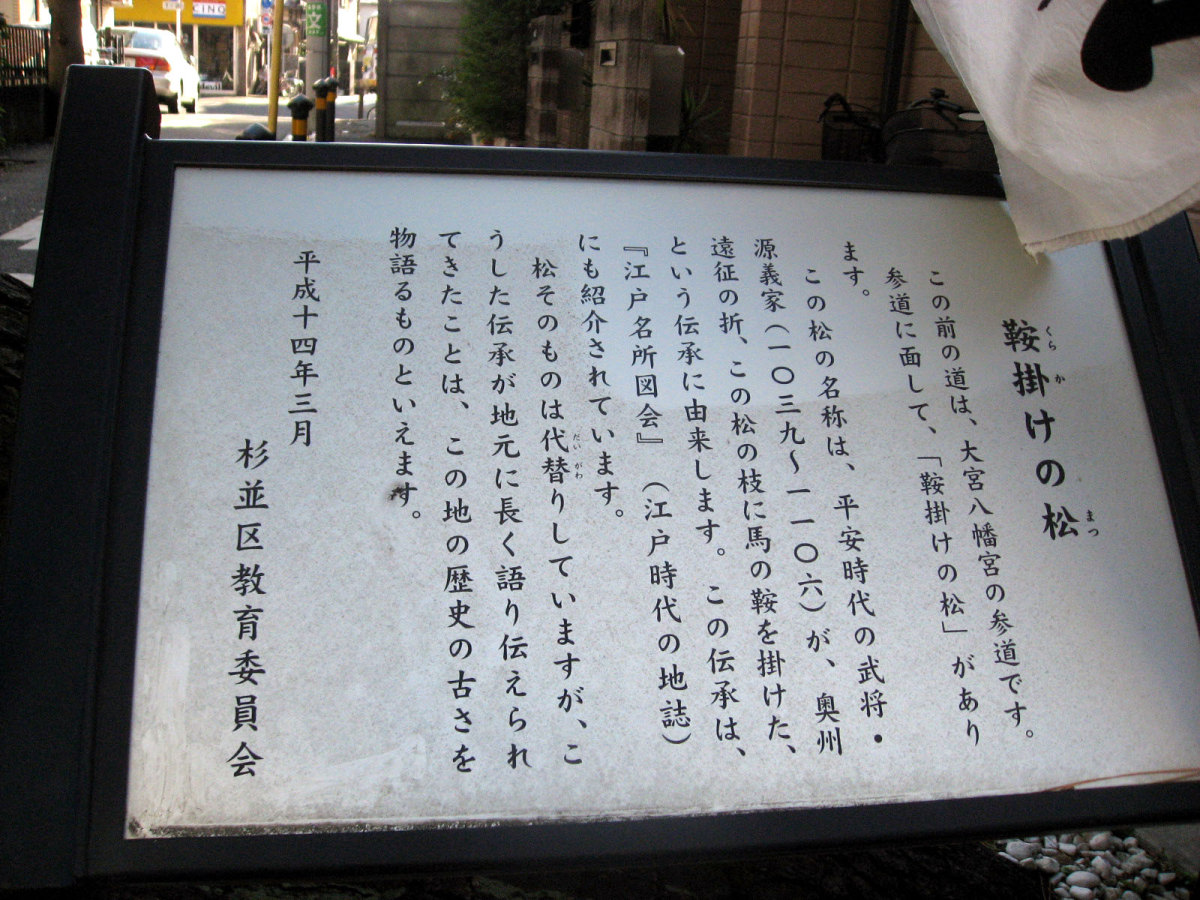 鞍掛けの松
くら
か
まつ
この前の道は、大宮八幡宮の参道です。
参道に面して、「鞍掛けの松」があり
ます。
この松の名称は、平安時代の武将・
源義家(一〇三九〜一一〇六)が、奥州
遠征の折、この松の枝に馬の鞍を掛けた、
という伝承に由来します。この伝承は、
『江戸名所図会』(江戸時代の地誌)
にも紹介されています。
松そのものは代替りしていますが、こ
だい がわ
うした伝承が地元に長く語り伝えられ
てきたことは、この地の歴史の古さを
物語るものといえます。
平成十四年三月
杉並区教育委員会
文